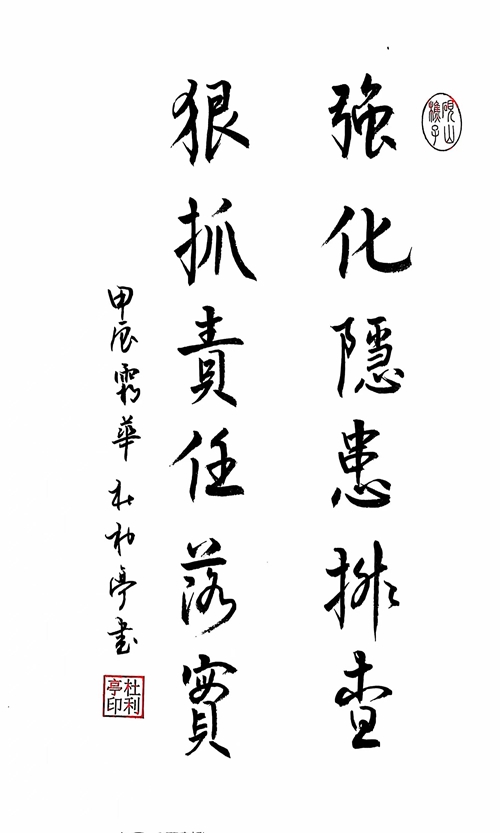 硯山樵子
強化隱患排查
狠抓責任落實
甲辰霜華杜利亭書
杜利亭印